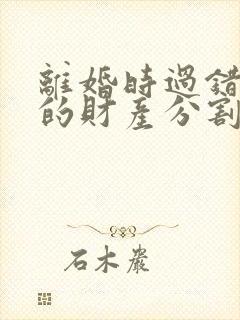 離婚時過錯
的財產分割
石木嚴